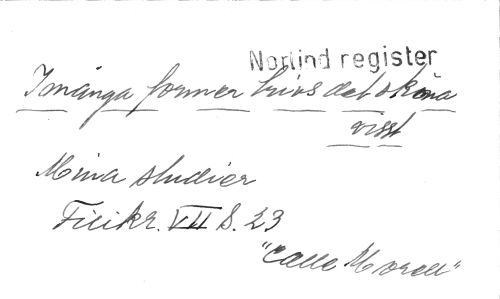 Norlind register
I många former trivs det sköna
visst
Mina studier
Fitikr. VII S. 23
"Calle Morell"